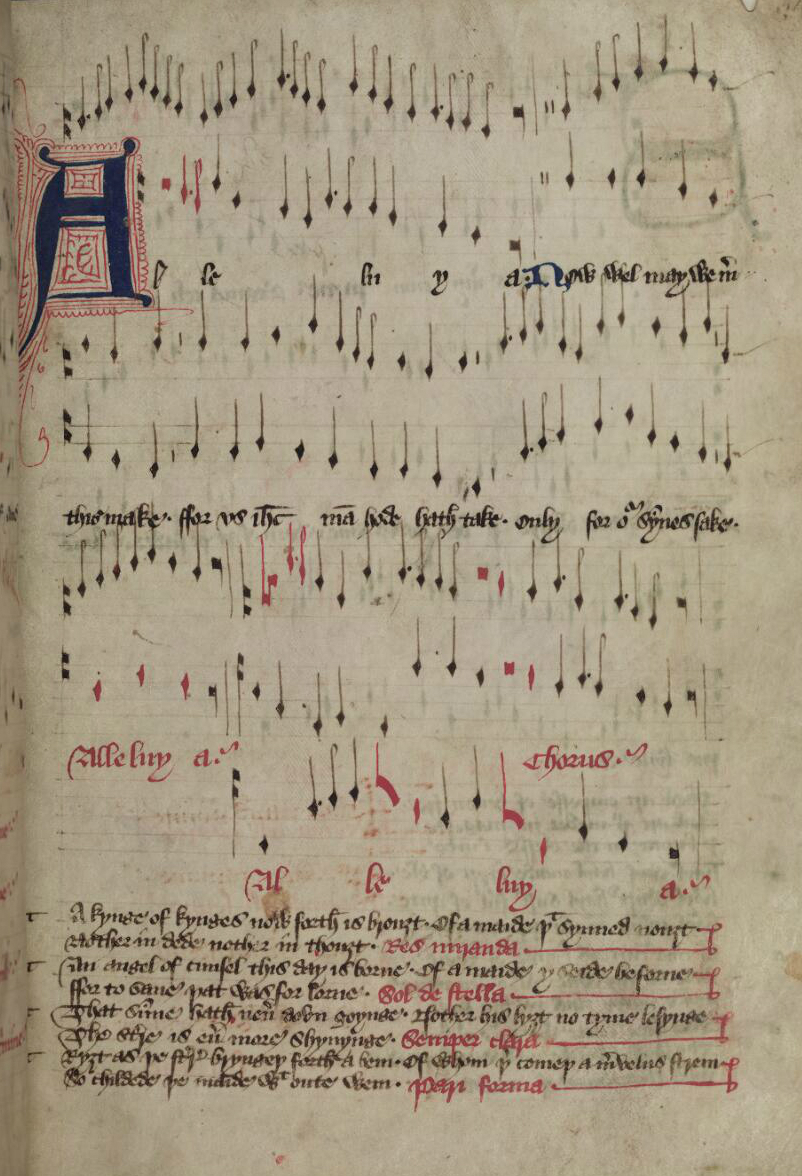 A l le lu y a. Now wel may we m̄
this make. ffor vs ihc̄ mā hode hath take. only for oʳ synes sake.
Alleluy a.
Chorus.
Al le luy a.
A kynge of kynges now forth is brouȝt. Of a maide þᵗ synned nouȝt
Nother in dede nother in thouȝt. Res miranda
An angel of cunsel this day is borne. Of a maide y seide beforne
ffor to saue þat was for lorne. Sol de stella
That sūne hath neū down goynge. Nother his lyȝt no tyme lesynge
The stre is eū more shynynge. Semper clara
Ryȝt as þe bryngeþ forth a bem. Of whom þʳ comeþ a mʳvelus strem
So childede þe maide wᵗ oute wem. Pari forma